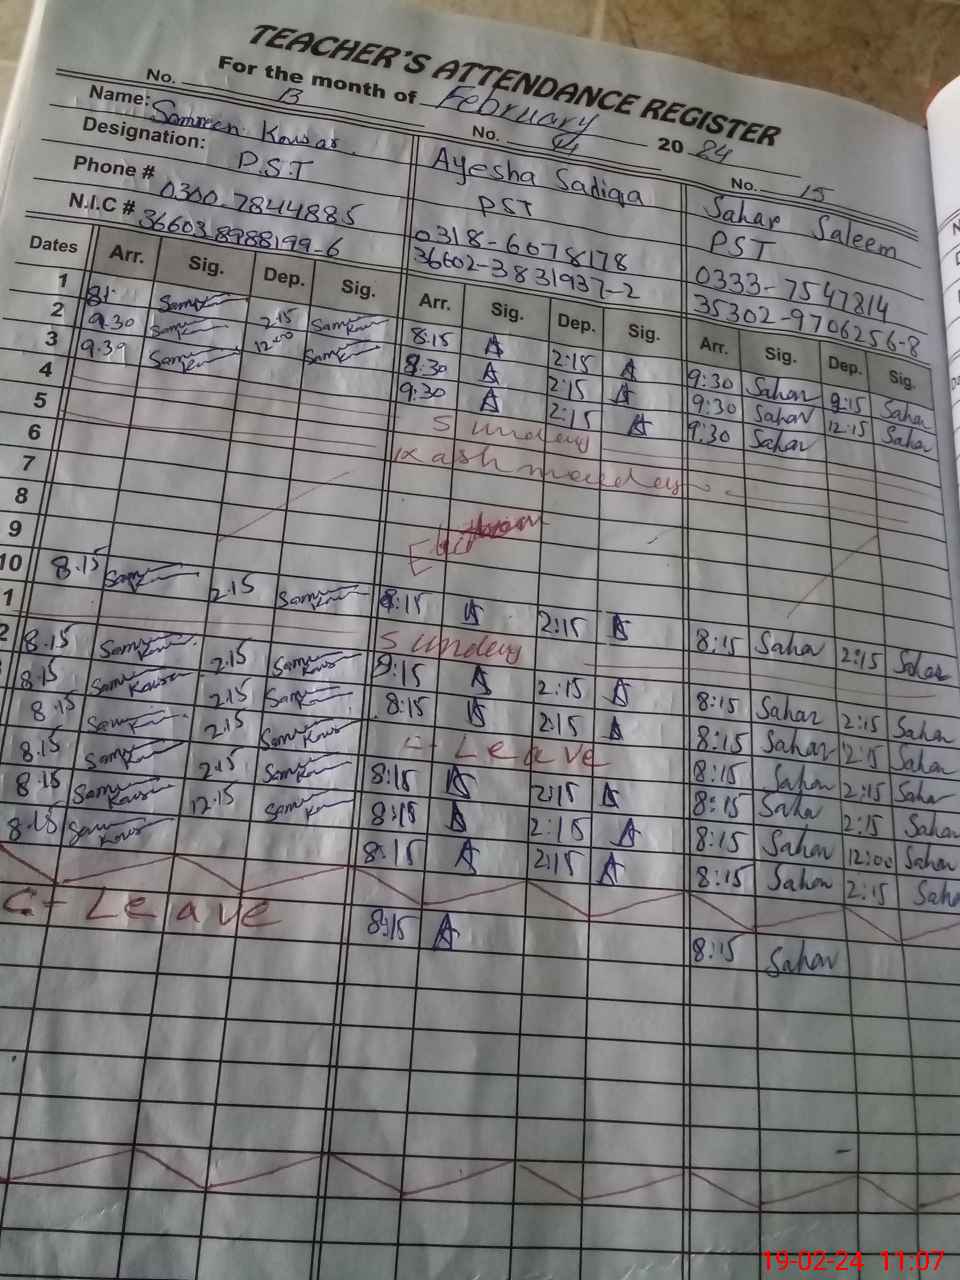 TEACHER'S ATTENDANCE REGISTER
For the month of February 20 24
No. 13 No. No. 15
Name: Samreen Kausar Ayesha Sadiqa Sahar Saleem
Designation: P.S.T PST PST
Phone # 0300-7844885 0318-6078178 0333-7547814
N.I.C # 36603-8988199-6 36602-3831937-2 35302-9706256-8
Dates Arr. Sig. Dep. Sig. Arr. Sig. Dep. Sig. Arr. Sig. Dep. Sig.
1 2:15 8:15 A 2:15 A 9:30 Sahar Sahar
2 9.30 12:00 8:30 A 2:15 A 9:30 Sahar 12:15 Sahar
3 9.30 9:30 A 2:15 A 9:30 Sahar
4 Sunday
5 Kashmir day
6
7
8
9
10 8.15 2.15 8:15 A 2:15 A 8:15 Sahar 2:15 Sahar
1 Sunday
2 8.15 2.15 8:15 A 2:15 A 8:15 Sahar 2:15 Sahar
8.15 2.15 8:15 A 2:15 A 8:15 Sahar 2:15 Sahar
8.15 2.15 C-Leave 8:15 Sahar 2:15 Sahar
8.15 2.15 8:15 A 2:15 A 8:15 Saha 2:15 Sahar
8.15 12.15 8:15 A 2:15 A 8:15 Sahar 12:00 Sahar
8.15 8:15 A 2:15 A 8:15 Sahar 2:15 Saha
C-Leave 8:15 A 8:15 Sahar
19-02-24 11:07